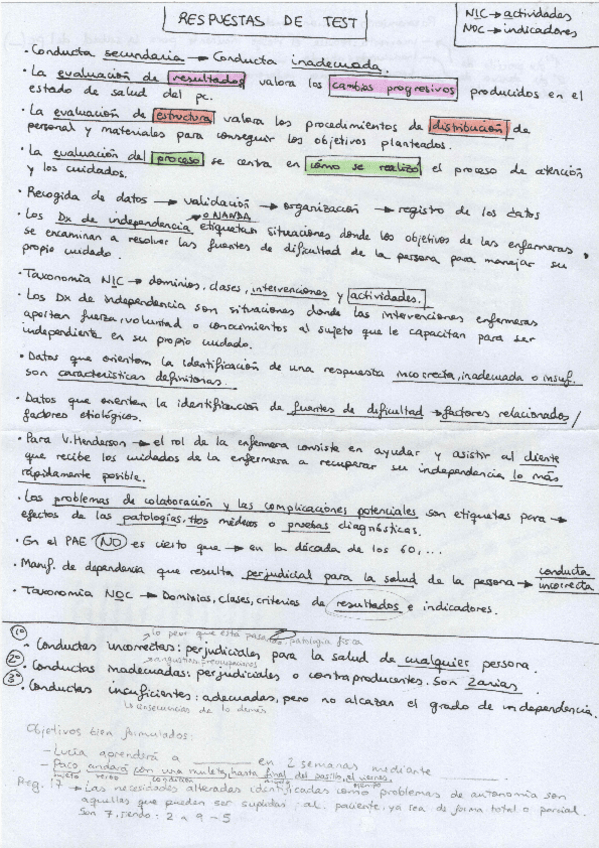 RESPUESTAS DE TEST
NIC → actividades
NOC → indicadores
· Conducta secundaria → Conducta inadecuada.
· La evaluación de resultados valora los cambios progresivos producidos en el
estado de salud del pc.
· La evaluación de estructura valora los procedimientos de distribución de
personal y materiales para conseguir los objetivos planteados.
· La evaluación del proceso se centra en cómo se realizó el proceso de atención
y los cuidados.
· Recogida de datos → validación → organización → registro de los datos
o NANDA
· Los Dx de independencia etiquetan situaciones donde los objetivos de las enfermeras
se encaminan a resolver las fuentes de dificultad de la persona para manejar su
propio cuidado.
· Taxonomía NIC → dominios, clases, intervenciones y actividades.
· Los Dx de independencia son situaciones donde las intervenciones enfermeras
aportan fuerza, voluntad o conocimientos al sujeto que le capacitan para ser
independiente en su propio cuidado.
· Datos que orientan la identificación de una respuesta incorrecta, inadecuada o insuf.
son características definitorias.
· Datos que orientan la identificación de fuentes de dificultad → factores relacionados/
factores etiológicos.
· Para V. Henderson → el rol de la enfermera consiste en ayudar y asistir al cliente
que recibe los cuidados de la enfermera a recuperar su independencia lo más
rápidamente posible.
· Los problemas de colaboración y las complicaciones potenciales son etiquetas para →
efectos de las patologías, ttos médicos o pruebas diagnósticas.
· En el PAE NO es cierto que → en la década de los 60,...
· Manif. de dependencia que resulta perjudicial para la salud de la persona → conducta
incorrecta
· Taxonomía NOC → Dominios, clases, criterios de resultados e indicadores.
lo peor que está patología física
1º · Conductas incorrectas: perjudiciales para la salud de cualquier persona.
angustia, preocupaciones
2º · Conductas inadecuadas: perjudiciales o contraproducentes. Son 2arias
3º · Conductas insuficientes: adecuadas, pero no alcanzan el grado de independencia.
consecuencias de lo demás
Objetivos bien formulados:
- Lucía aprenderá a ______ en 2 semanas mediante ______
- Paco, andará con una muleta, hasta final del pasillo, el viernes
sujeto verbo condición
Preg. 17 → Las necesidades alteradas identificadas como problemas de autonomía son
aquellas que pueden ser suplidas al paciente, ya sea de forma total o parcial.
Son 7, siendo: 2 a 9 - 5